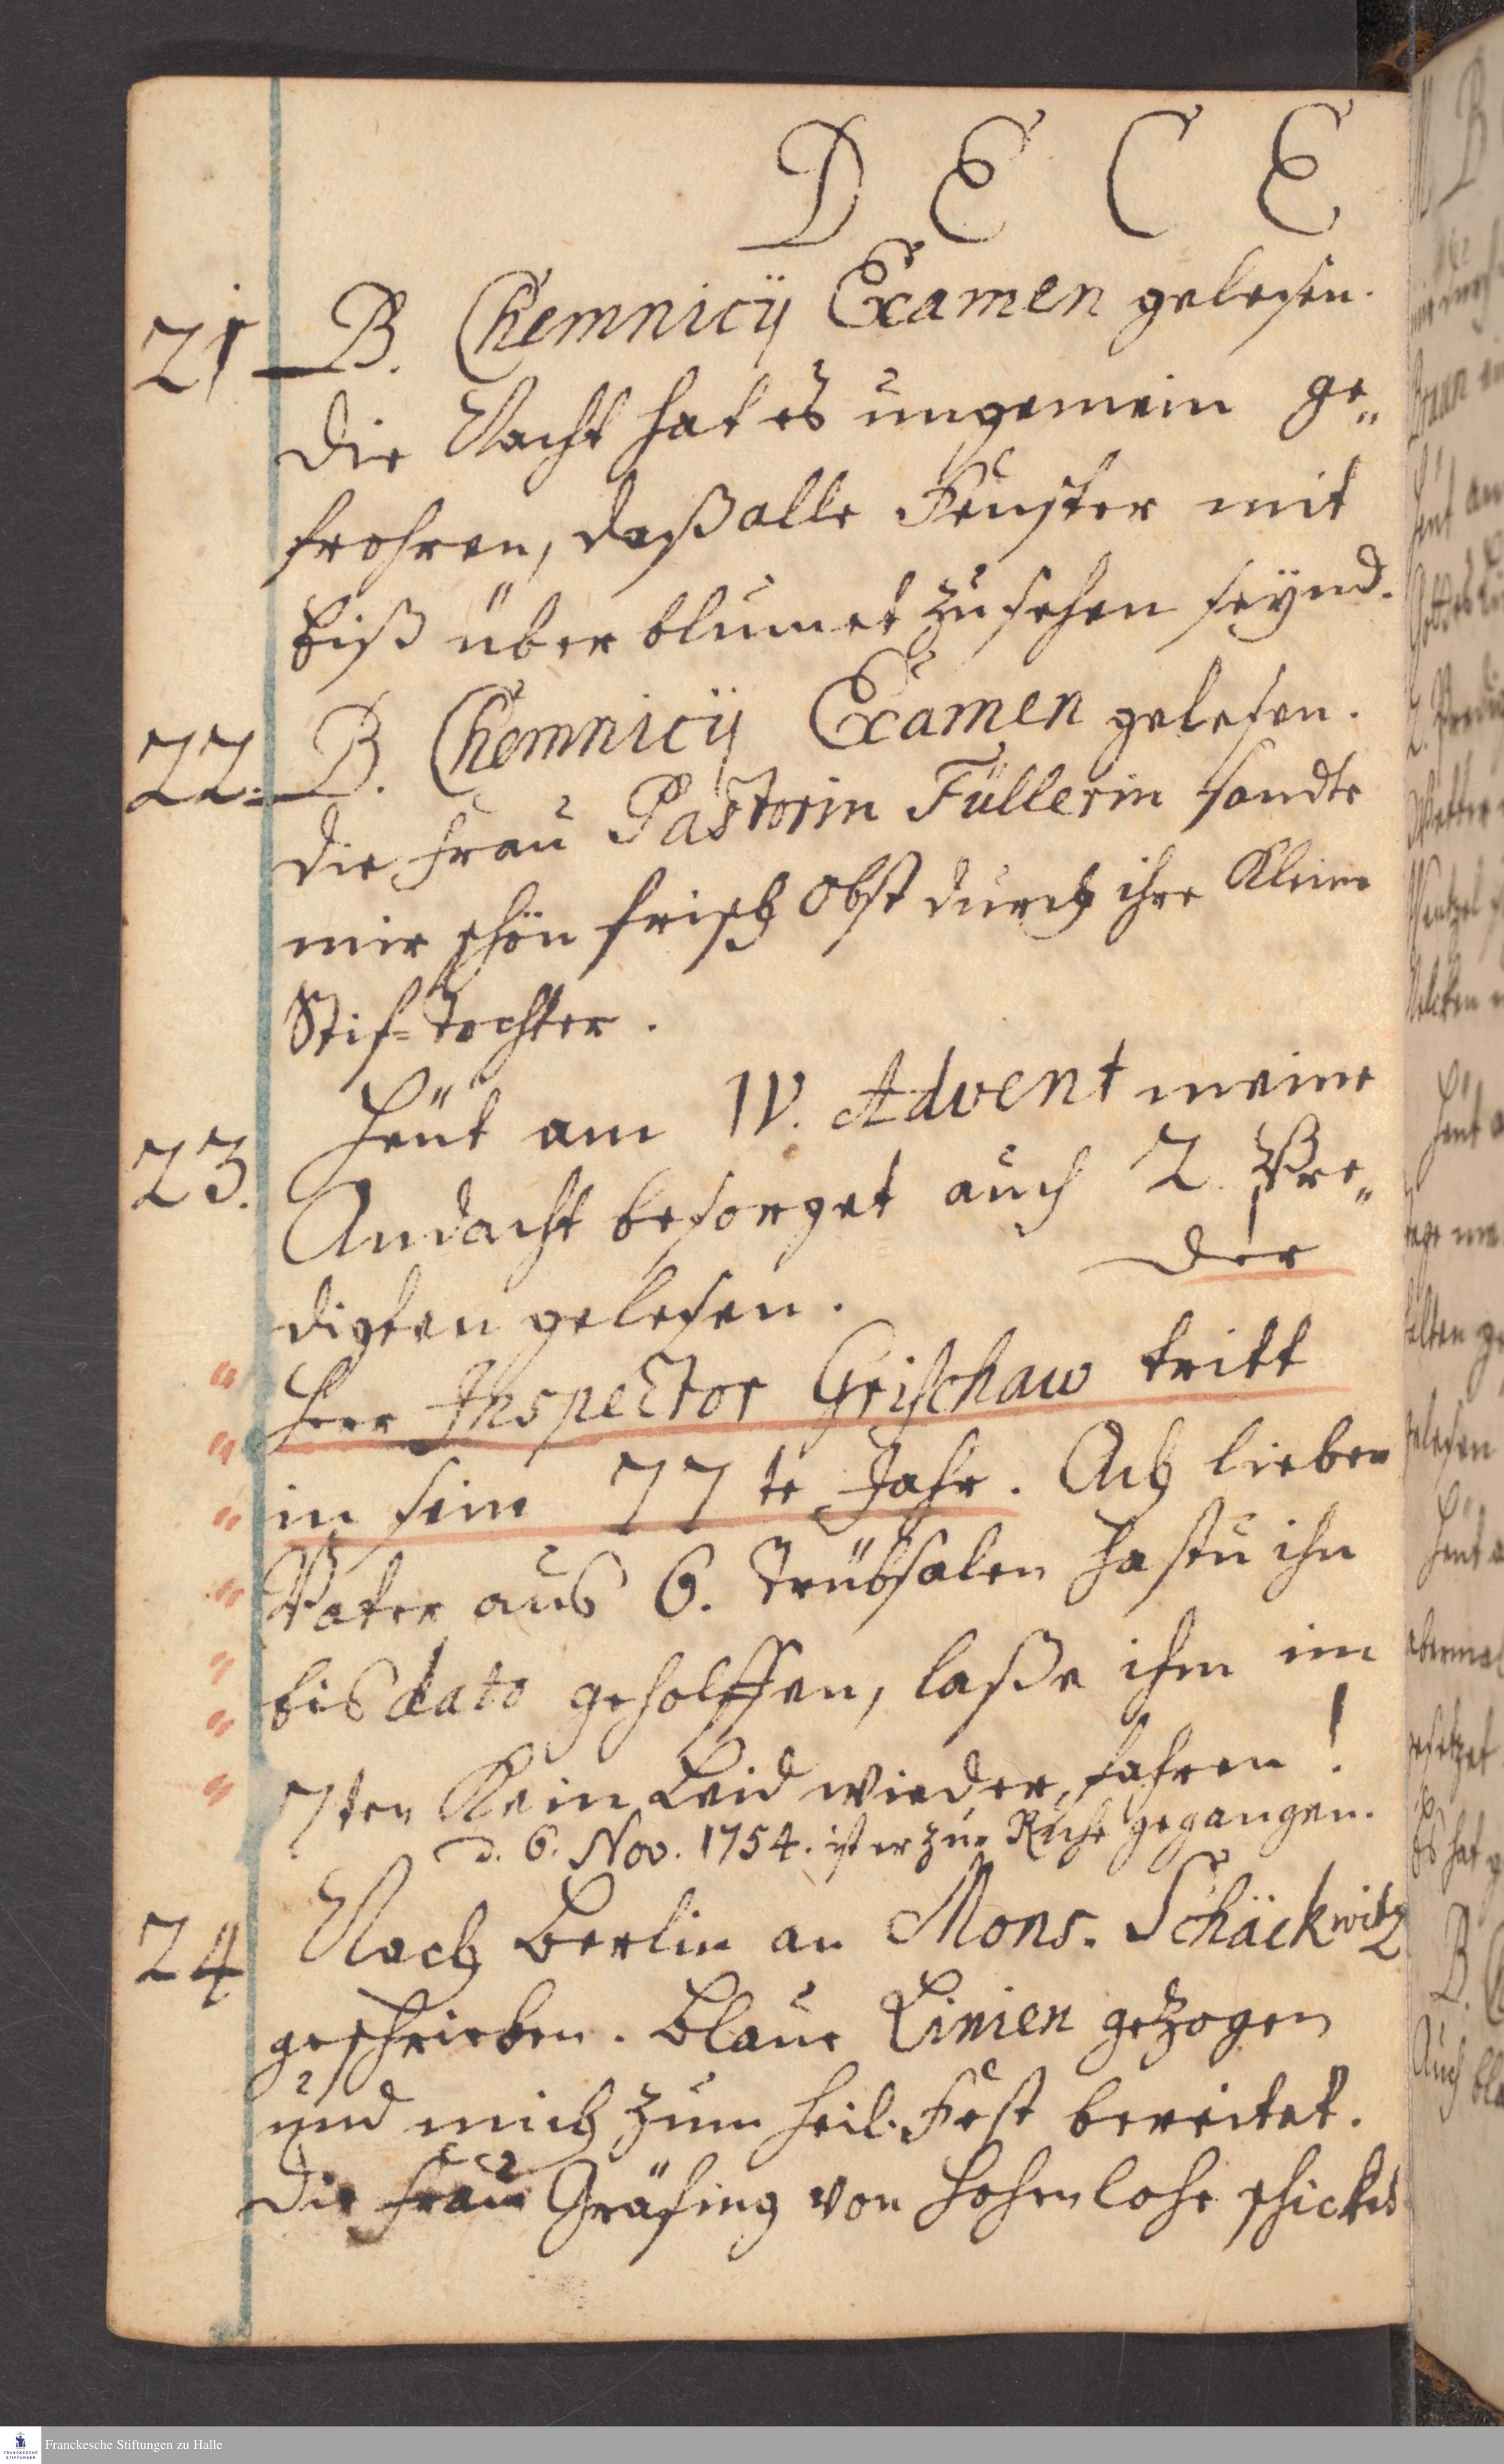 D E C E
21 B. Chemnicij Examen gelesen.
die Nacht hat es ungemein ge„
frohren, daß alle Fenster mit
Eiß über blumet zu sehen seynd.
22. B. Chemnicij Examen gelesen.
die Frau Pastorin Füllerin sandte
mir schön frisch Obst durch ihre Kleine
Stif=Tochter.
23. Heut am IV. Advent meine
Andacht besorget auch 2. Pre„
digten gelesen. Der
Herr Inspector Grischaw tritt
in sein 77te Jahr. Ach lieber
Vater aus 6. Trübsalen hastu ihn
bis dato geholffen, laße ihm im
7ten Kein Leid wieder fahren!
d. 6. Nov. 1754. ist er zur Ruhe gegangen.
24 Nach Berlin an Mons. Schäckwitz
geschrieben. Blaue Linien gezogen
und mich zum heil. Fest bereitet.
Die Frau Gräfing von Hohenlohe schickes
Franckesche Stiftungen zu Halle